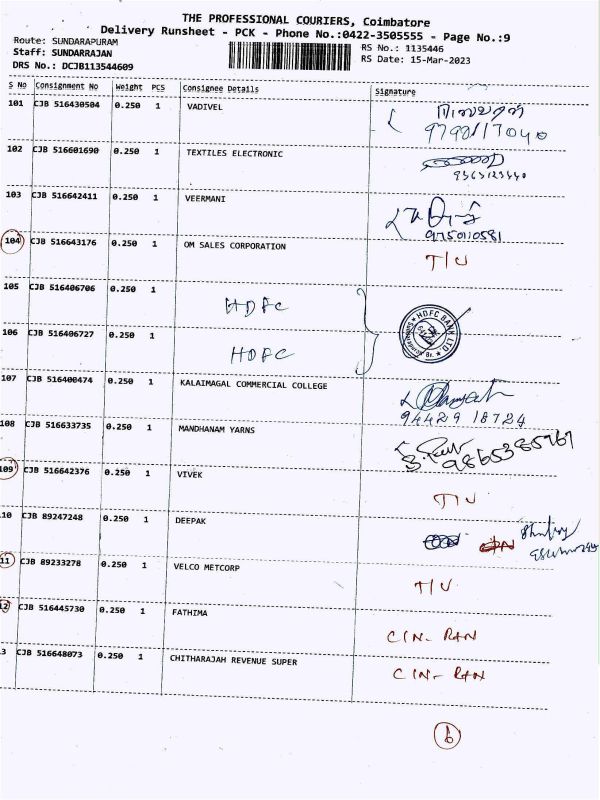 THE PROFESSIONAL COURIERS, Coimbatore
Delivery Runsheet - PCK - Phone No.:0422-3505555 - Page No.:9
Route: SUNDARAPURAM
RS No.: 1135446
Staff: SUNDARRAJAN
RS Date: 15-Mar-2023
DRS No.: DCJB113544609
S No Consignment No Weight PCS Consignee Details Signature
101 CJB 516430504 0.250 1 VADIVEL
102 CJB 516601690 0.250 1 TEXTILES ELECTRONIC
103 CJB 516642411 0.250 1 VEERMANI
9750110581
104 CJB 516643176 0.250 1 OM SALES CORPORATION T/U
105 CJB 516406706 0.250 1 HDFC
HDFC BANK LTD
106 CJB 516406727 0.250 1 HDFC
107 CJB 516400474 0.250 1 KALAIMAGAL COMMERCIAL COLLEGE
94429 18724
108 CJB 516633735 0.250 1 MANDHANAM YARNS
9865385767
109 CJB 516642376 0.250 1 VIVEK T/U
10 CJB 89247248 0.250 1 DEEPAK
11 CJB 89233278 0.250 1 VELCO METCORP T/U
12 CJB 516445730 0.250 1 FATHIMA CIN-RAN
3 CJB 516648073 0.250 1 CHITHARAJAH REVENUE SUPER CIN-RAN
6